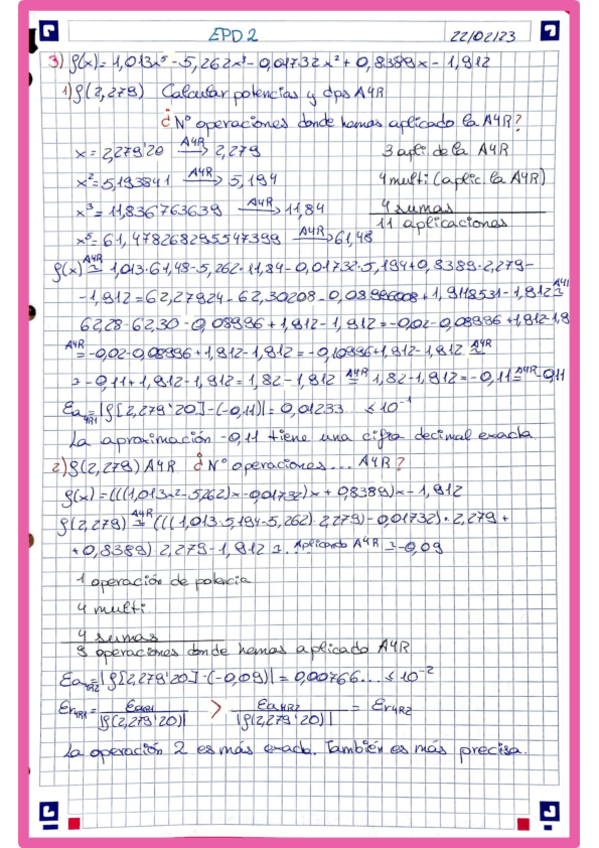 EPD 2 22/02/23
3) f(x) = 1,013x⁵ - 5,262x³ - 0,01732x² + 0,8389x - 1,912
1) f(2,279) Calcular potencias y dps A4R
¿Nº operaciones donde hemos aplicado la A4R?
x = 2,279'20 A4R→ 2,279 3 apli de la A4R
x² = 5,193841 A4R→ 5,194 4 multi (aplic. la A4R)
x³ = 11,836763639 A4R→ 11,84 4 sumas
x⁵ = 61,478268295547399 A4R→ 61,48 11 aplicaciones
f(x) A4R≅ 1,013·61,48 - 5,262·11,84 - 0,01732·5,194 + 0,8389·2,279 -
- 1,912 = 62,27924 - 62,30208 - 0,08996008 + 1,9118531 - 1,912 A4R≅
62,28 - 62,30 - 0,08996 + 1,912 - 1,912 = -0,02 - 0,08996 + 1,912 - 1,9
A4R≅ -0,02 - 0,08996 + 1,912 - 1,912 = -0,10996 + 1,912 - 1,912 A4R≅
= -0,11 + 1,912 - 1,912 = 1,82 - 1,912 A4R≅ 1,82 - 1,912 = -0,11 A4R≅ -0,11
Ea4R1 = |f[2,279'20] - (-0,11)| = 0,01233 ≤ 10⁻¹
La aproximación -0,11 tiene una cifra decimal exacta
2) f(2,279) A4R ¿Nº operaciones... A4R?
f(x) = (((1,013x² - 5,262)x - 0,01732)x + 0,8389)x - 1,912
f(2,279) A4R≅ (((1,013·5,194 - 5,262)·2,279) - 0,01732)·2,279 +
+ 0,8389)·2,279 - 1,912 =... Aplicando A4R = -0,09
1 operación de potencia
4 multi
4 sumas
9 operaciones donde hemos aplicado A4R
Ea4R2 = |f[2,279'20] - (-0,09)| = 0,00766... ≤ 10⁻²
Er4R1 = Ea4R1 / |f(2,279'20)| > Ea4R2 / |f(2,279'20)| = Er4R2
La operación 2 es más exacta. También es más precisa.